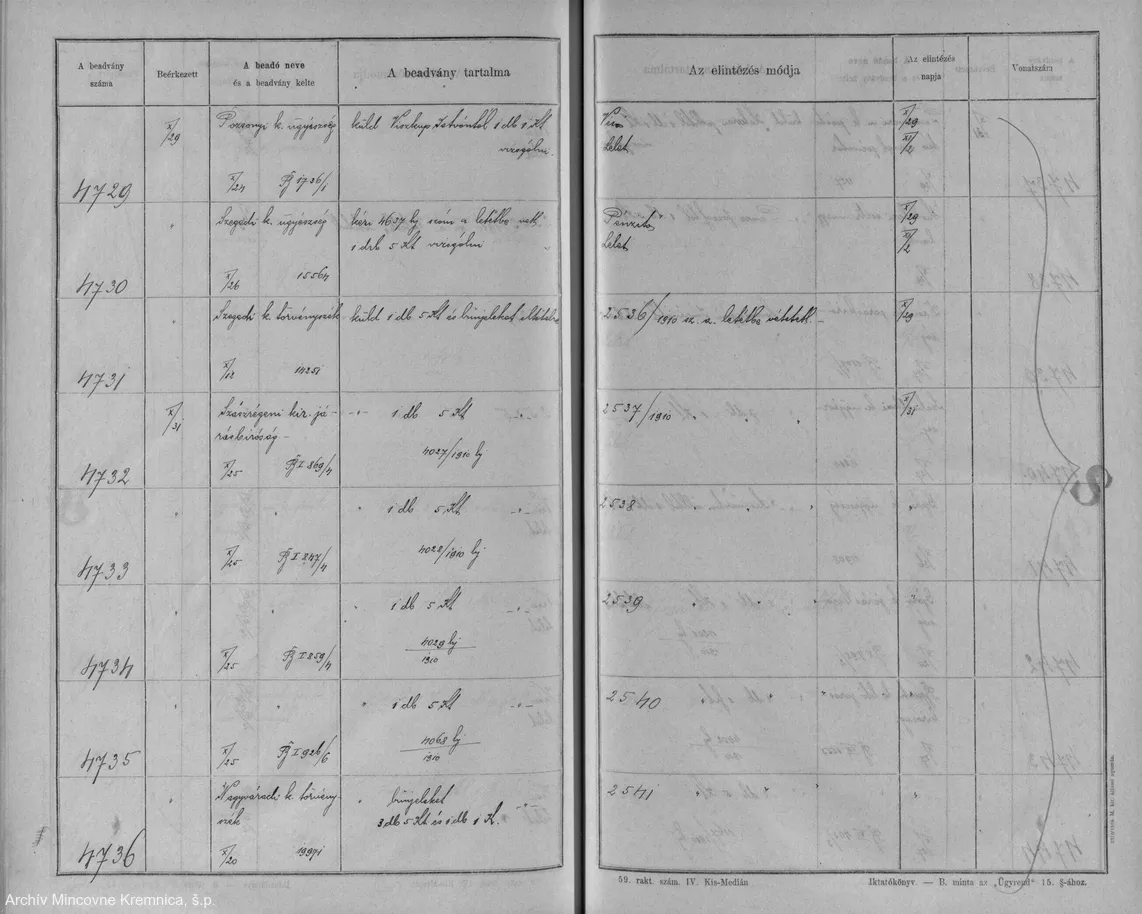 A beadvány száma
Beérkezett
A beadó neve és a beadvány kelte
A beadvány tartalma
Az elintézés módja
Az elintézés napja
Vonatszám
4729
X/29
Pozsonyi k. ügyészség
X/24 1736/1
küld Istvántól 1 db 1 Kt
vizsgálni
Lelet
X/29
XI/2
4730
"
Szegedi k. ügyészség
X/26 15564
kéri 4637 bj szám a letétbe vett
1 drb 5 Kt vizsgálni
Lelet
X/29
XI/2
4731
"
Szegedi k. törvényszék
X/12 14251
küld 1 db 5 Kt és bűnjeleket
2536/1910 sz. a. letétbe vétetett
X/29
4732
X/31
Szászrégeni kir. já-
rásbíróság
X/25 I 869/4
" 1 db 5 Kt
4027/1910 bj
2537/1910
X/31
4733
"
X/25 I 847/4
" 1 db 5 Kt
4028/1910 bj
2538
4734
"
X/25 I 859/4
" 1 db 5 Kt
4029 bj
1910
2539
4735
"
X/25 I 926/6
" 1 db 5 Kt
4068 bj
1910
2540
4736
"
Nagyváradi k. törvény-
szék
X/20 19971
" bűnjeleket
3 db 5 Kt és 1 db 1 K.
2541
8
59. rakt. szám. IV. Kis-Medián
Iktatókönyv. — B. minta az „Ügyrend" 15. §-ához.
Archív Mincovne Kremnica, š.p.